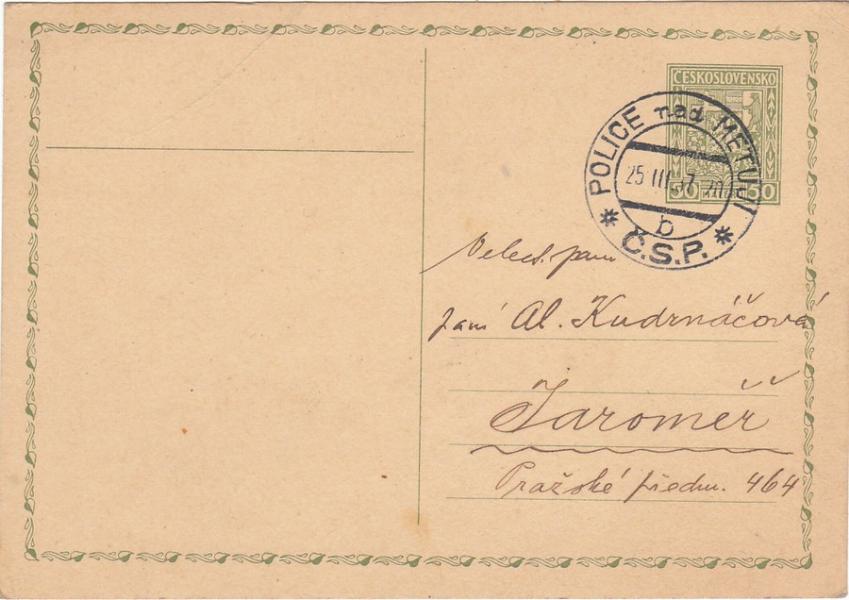 ČESKOSLOVENSKO
50 50
POLICE nad METUJÍ
25 III 37
b
Č.S.P.
Velect. paní
paní Al. Kudrnáčová
Jaroměř
Pražské předm. 464